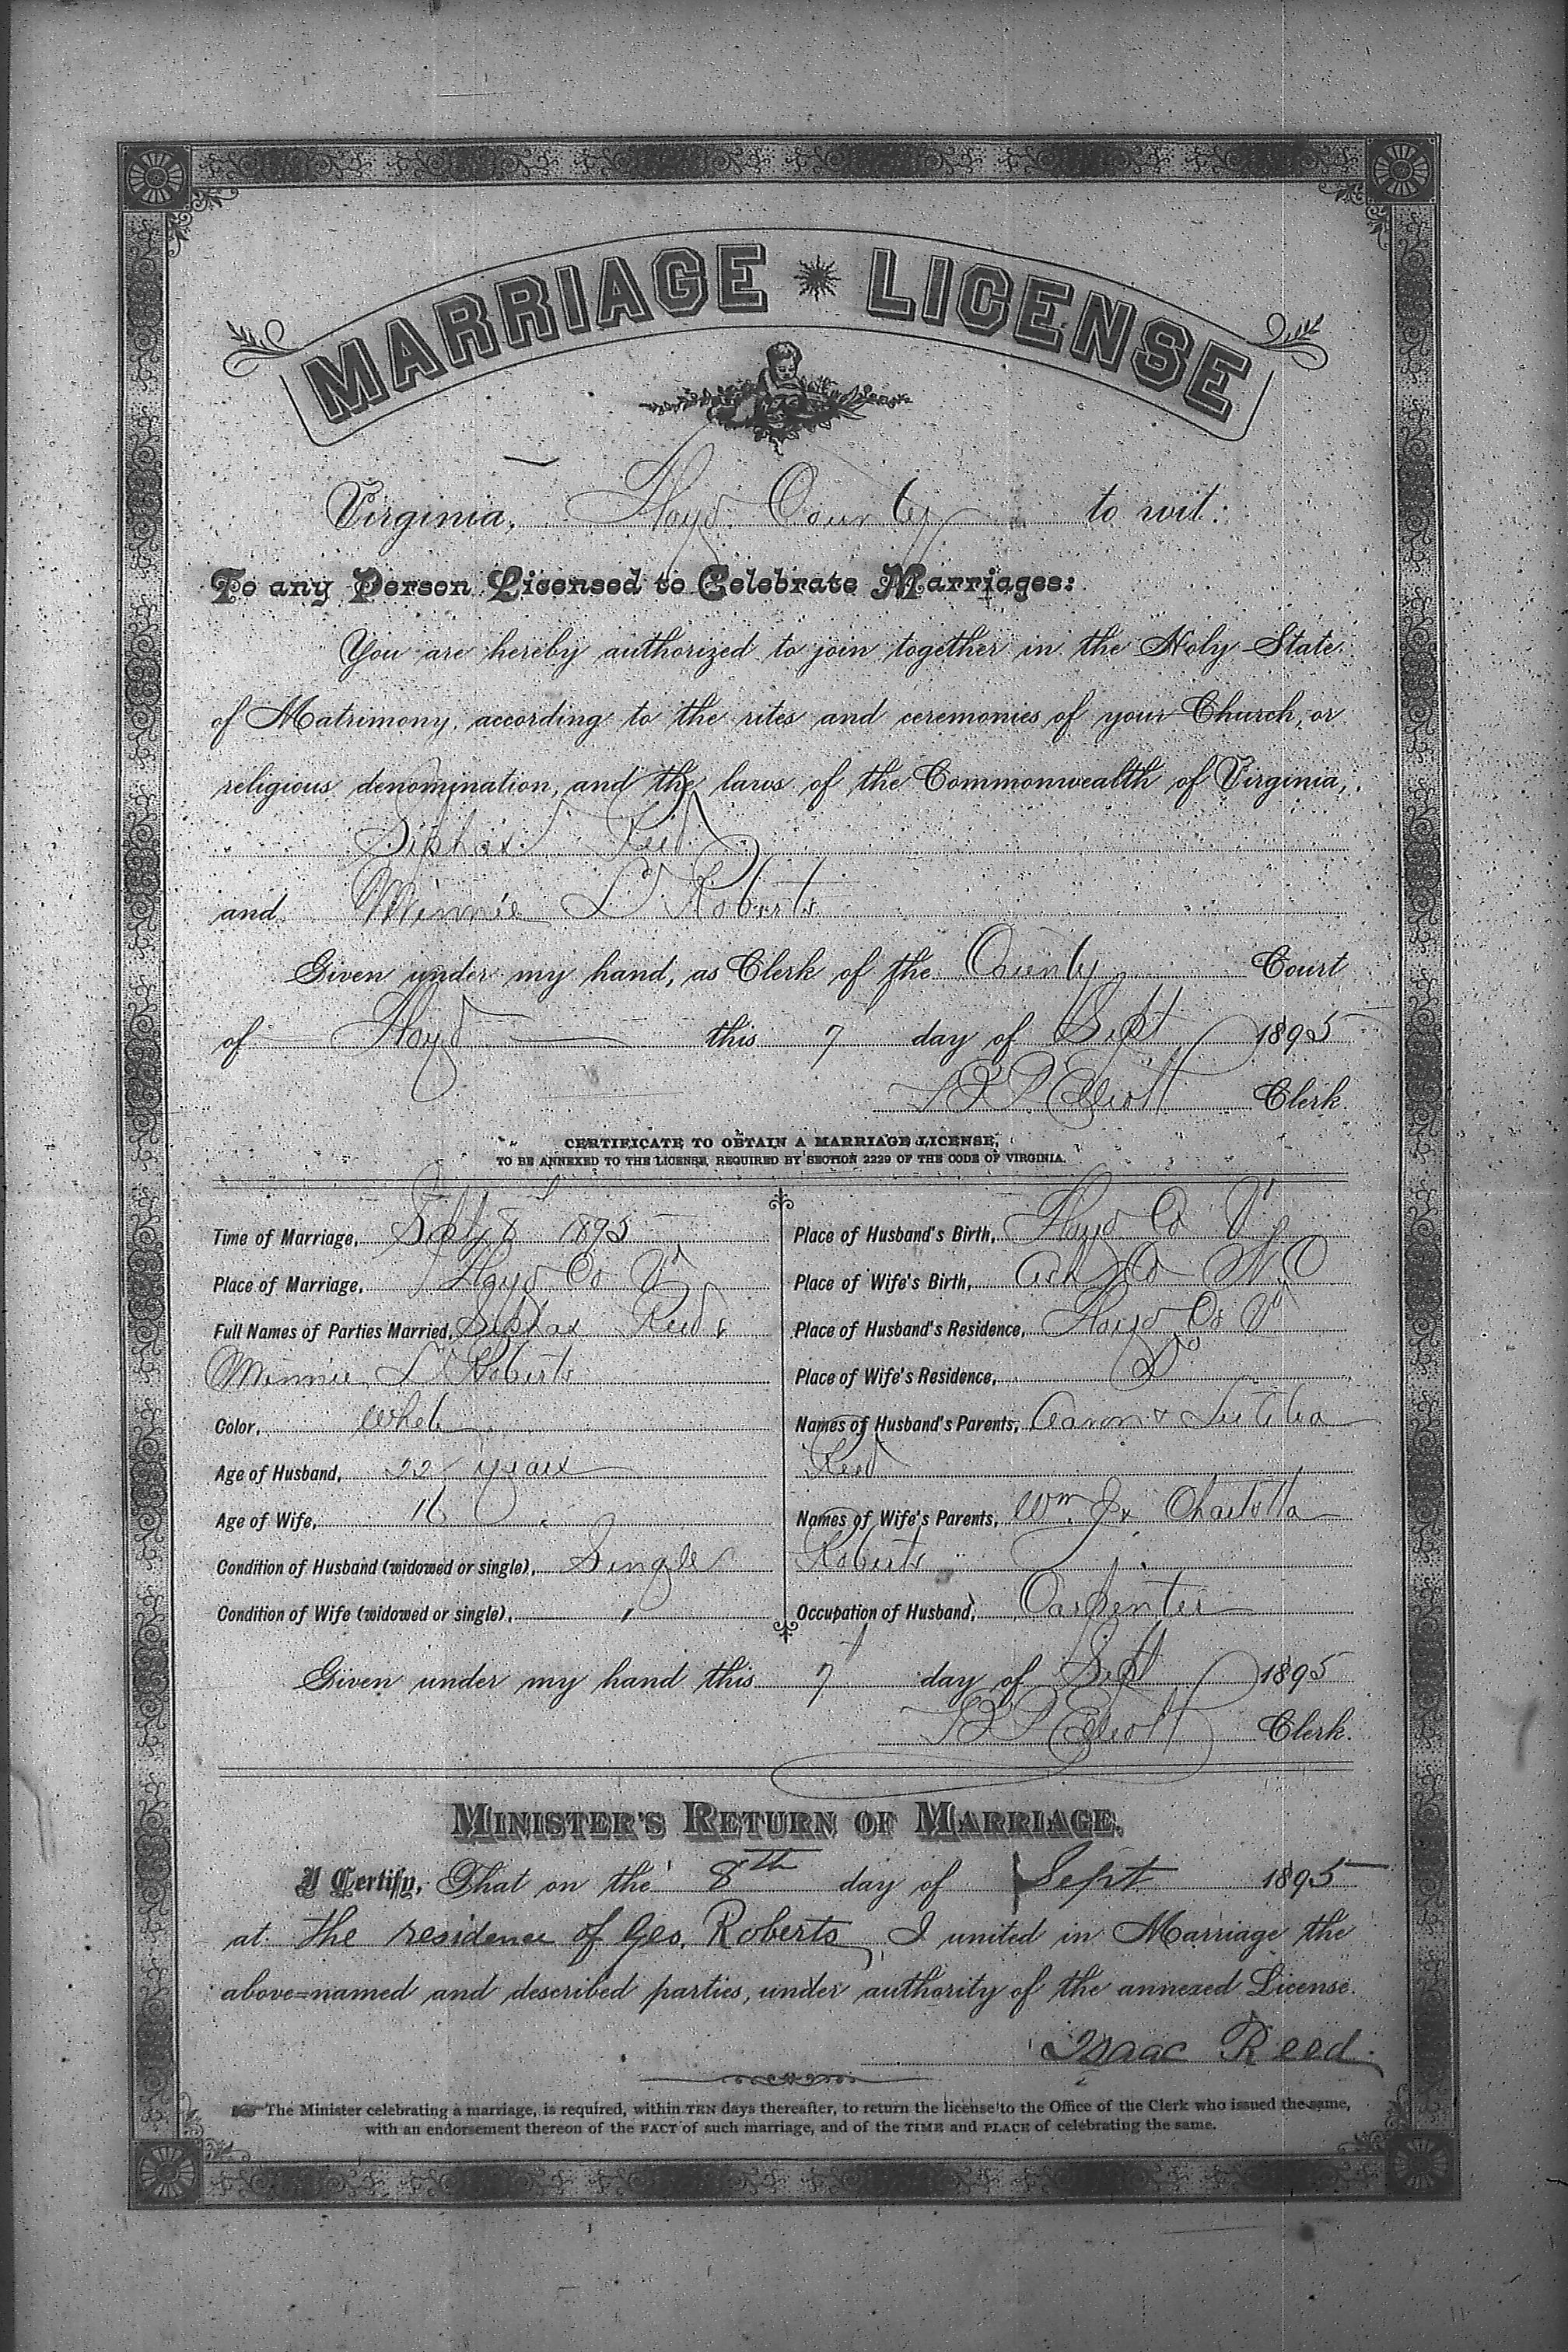 MARRIAGE LICENSE
Virginia, Floyd County to wit:
To any Person Licensed to Celebrate Marriages:
You are hereby authorized to join together in the Holy State
of Matrimony, according to the rites and ceremonies of your Church, or
religious denomination, and the laws of the Commonwealth of Virginia,
Siphax Reed
and Minnie L Roberts
Given under my hand, as Clerk of the County Court
of Floyd this 7 day of Sept 1895
Elliott Clerk.
CERTIFICATE TO OBTAIN A MARRIAGE LICENSE,
TO BE ANNEXED TO THE LICENSE, REQUIRED BY SECTION 2229 OF THE CODE OF VIRGINIA.
Time of Marriage, Sept 8 1895
Place of Marriage, Floyd Co Va
Full Names of Parties Married, Siphax Reed &
Minnie L Roberts
Color, White
Age of Husband, 22 years
Age of Wife, 16 "
Condition of Husband (widowed or single), Single
Condition of Wife (widowed or single), "
Place of Husband's Birth, Floyd Co Va
Place of Wife's Birth, Ash Co N C
Place of Husband's Residence, Floyd Co Va
Place of Wife's Residence, Do
Names of Husband's Parents, Aaron &
Reed
Names of Wife's Parents, Wm J & Charlotta
Roberts
Occupation of Husband, Carpenter
Given under my hand this 7 day of Sept 1895
Elliott Clerk.
MINISTER'S RETURN OF MARRIAGE.
I Certify, That on the 8th day of Sept 1895
at the residence of Geo. Roberts, I united in Marriage the
above-named and described parties, under authority of the annexed License.
Isaac Reed
The Minister celebrating a marriage, is required, within TEN days thereafter, to return the license to the Office of the Clerk who issued the same,
with an endorsement thereon of the FACT of such marriage, and of the TIME and PLACE of celebrating the same.